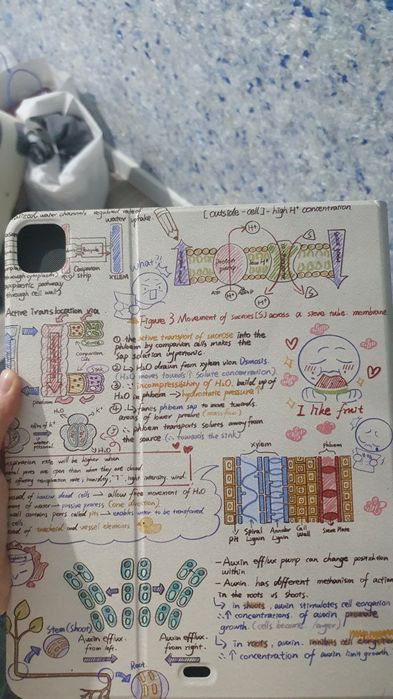 water uptake
[outside-cell] - high H⁺ concentration
H⁺
S
Pericycle
Casparian strip
XYLEM
apoplastic pathway
through cell wall
what?!
proton pump
ATP
H⁺
H⁺
S
Figure 3 Movement of sucrose (S) across a sieve tube membrane
Active Translocation via
① the active transport of sucrose into the
phloem by companion cells makes the
sap solution hypertonic.
② ↳ H₂O drawn from xylem by Osmosis.
(H₂O moves towards ↑ solute concentration)
③ ∵ incompressibility of H₂O, build up of
H₂O in phloem → hydrostatic pressure ↑
④ ↳ forces phloem sap to move towards
areas of lower pressure (mass flow)
⑤ ∴ phloem transports solutes away from
the source (∴ towards the sink)
H₂O
K⁺
phloem
I like fruit
rate will be higher when
are open than when they are closed
humidity, "T", light intensity, wind
dead cells → allow free movement of H₂O
passive process (one direction)
pits → enables water to be transferred
cells
tracheid and vessel elements
xylem
phloem
Pit
Spiral Lignin
Annular Lignin
Cell Wall
Sieve Plate
- Auxin efflux pump can change position
within
- Auxin has different mechanism of action
in the roots vs shoots.
↳ in shoots, auxin stimulates cell elongation
∴ ↑ concentrations of auxin promote
growth. (cells become larger)
↳ in roots, auxin inhibits cell elongation
∴ ↑ concentration of auxin limit growth.
Stem (shoot)
Auxin efflux
from left.
Auxin efflux
from right.
Root